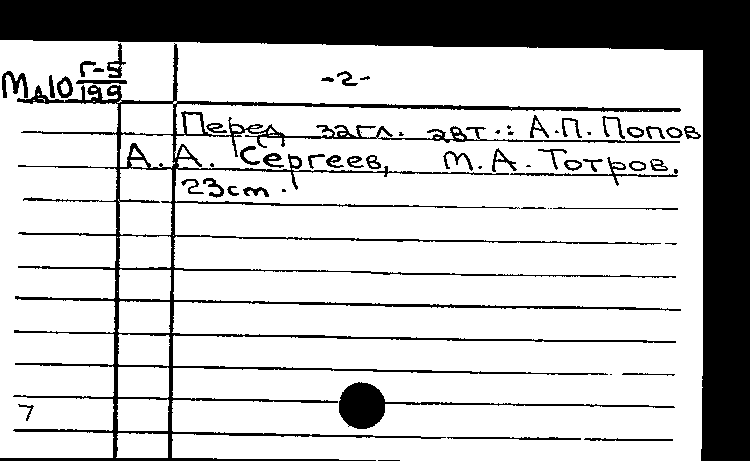 Мд10 Г-5/199
-2-
Перед загл. авт.: А.П. Попов
А. А. Сергеев, М.А. Тотров.
23cm.
7